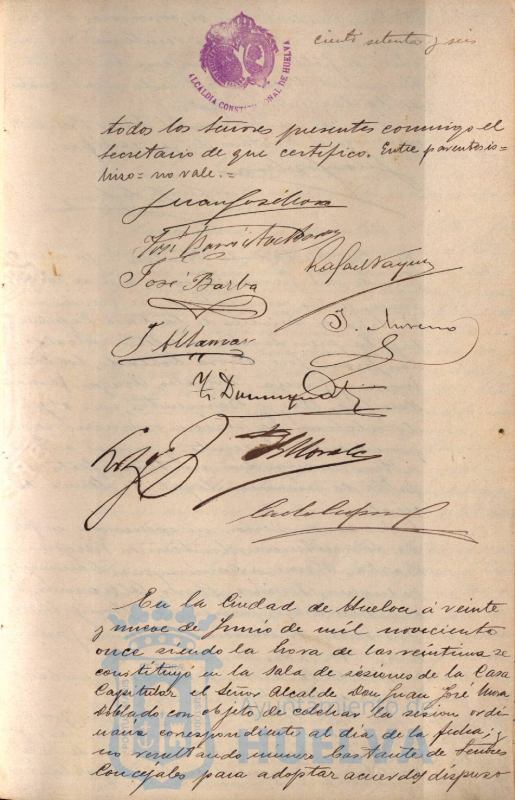 ciento setenta y seis
ALCALDIA CONSTITUCIONAL DE HUELVA
todos los Señores presentes conmigo el
Secretario de que certifico. Entre parentesis=
hizo=no vale.=
Juan José Mora
José
Rafael Vazquez
José Barba
J. Moreno
Morales
En la Ciudad de Huelva á veinte
y nueve de Junio de mil novecientos
once siendo la hora de las veintiuna se
constituyó en la Sala de sesiones de la Casa
Capitular el Señor Alcalde Don Juan José Mora
Doblado con objeto de celebrar la sesion ordi
naria correspondiente al dia de la fecha; y
no resultando numero bastante de Señores
Concejales para adoptar acuerdos dispuso
Ayuntamiento de
HUELVA